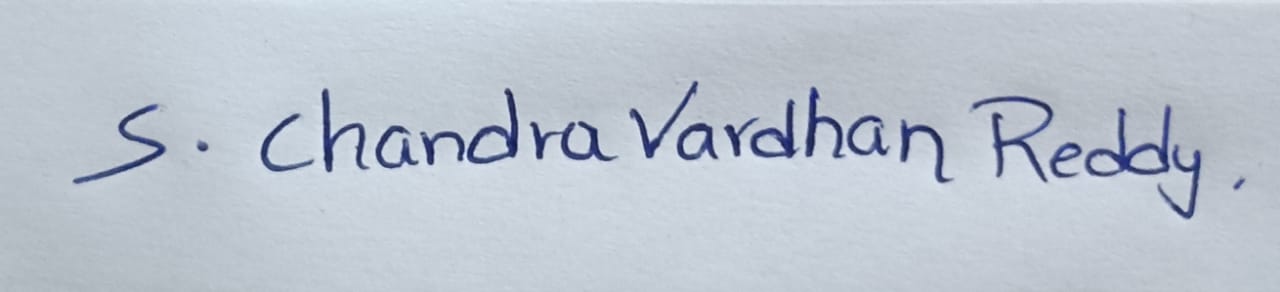 S. Chandra Vardhan Reddy.